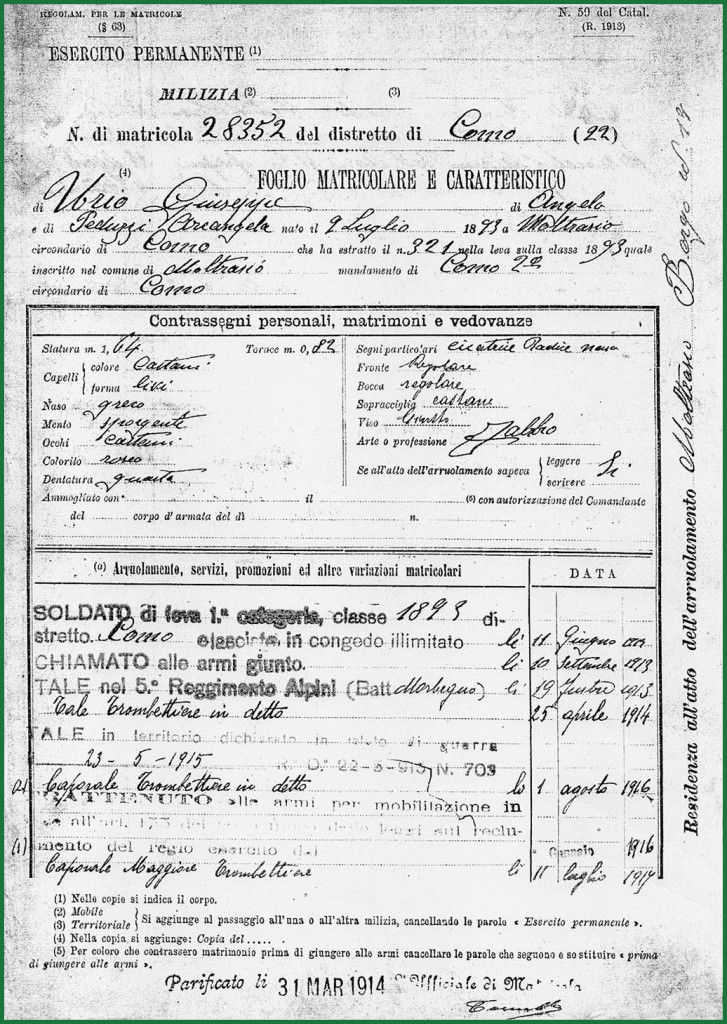 REGOLAM. PER LE MATRICOLE
(§ 63)
N. 59 del Catal.
(R. 1913)
ESERCITO PERMANENTE (1)
MILIZIA (2) (3)
N. di matricola 28352 del distretto di Como (22)
(4) FOGLIO MATRICOLARE E CARATTERISTICO
di Urio Giuseppe di Angelo
e di Peduzzi Arcangela nato il 9 Luglio 1893 a Moltrasio
circondario di Como che ha estratto il n. 321 nella leva sulla classe 1893 quale
inscritto nel comune di Moltrasio mandamento di Como 2º
circondario di Como
Contrassegni personali, matrimoni e vedovanze
Statura m. 1,64 Torace m. 0,82
Capelli colore Castani
forma lisci
Naso greco
Mento sporgente
Occhi castani
Colorito roseo
Dentatura guasta
Segni particolari cicatrice Radice naso
Fronte Regolare
Bocca regolare
Sopracciglia castane
Viso Giusto
Arte o professione Fabbro
Se all'atto dell'arruolamento sapeva leggere scrivere Si
Ammogliato con il (5) con autorizzazione del Comandante
del corpo d'armata del dì n.
(a) Arruolamento, servizi, promozioni ed altre variazioni matricolari
DATA
SOLDATO di leva 1.ª categoria, classe 1893 di-
stretto Como e lasciato in congedo illimitato lì 11 Giugno
CHIAMATO alle armi giunto. lì 10 Settembre 1913
TALE nel 5.º Reggimento Alpini (Batt Morbegno) lì 19 1913
Tale Trombettiere in detto 25 aprile 1914
TALE in territorio dichiarato in stato di guerra
23-5-1915 R. D.º 22-5-915 N. 703
Caporale Trombettiere in detto lì 1 agosto 1916
RATTENUTO alle armi per mobilitazione in
(1) mento del regio esercito Gennaio 1916
Caporale Maggiore Trombettiere lì 11 luglio 1917
(1) Nelle copie si indica il corpo.
(2) Mobile
(3) Territoriale
Si aggiunge al passaggio all'una o all'altra milizia, cancellando le parole « Esercito permanente ».
(4) Nella copia si aggiunge: Copia del .....
(5) Per coloro che contrassero matrimonio prima di giungere alle armi cancellare le parole che seguono e sostituire « prima
di giungere alle armi ».
Parificato lì 31 MAR 1914 L'Ufficiale di Matricola
Residenza all'atto dell'arruolamento Moltrasio Borgo n. 19